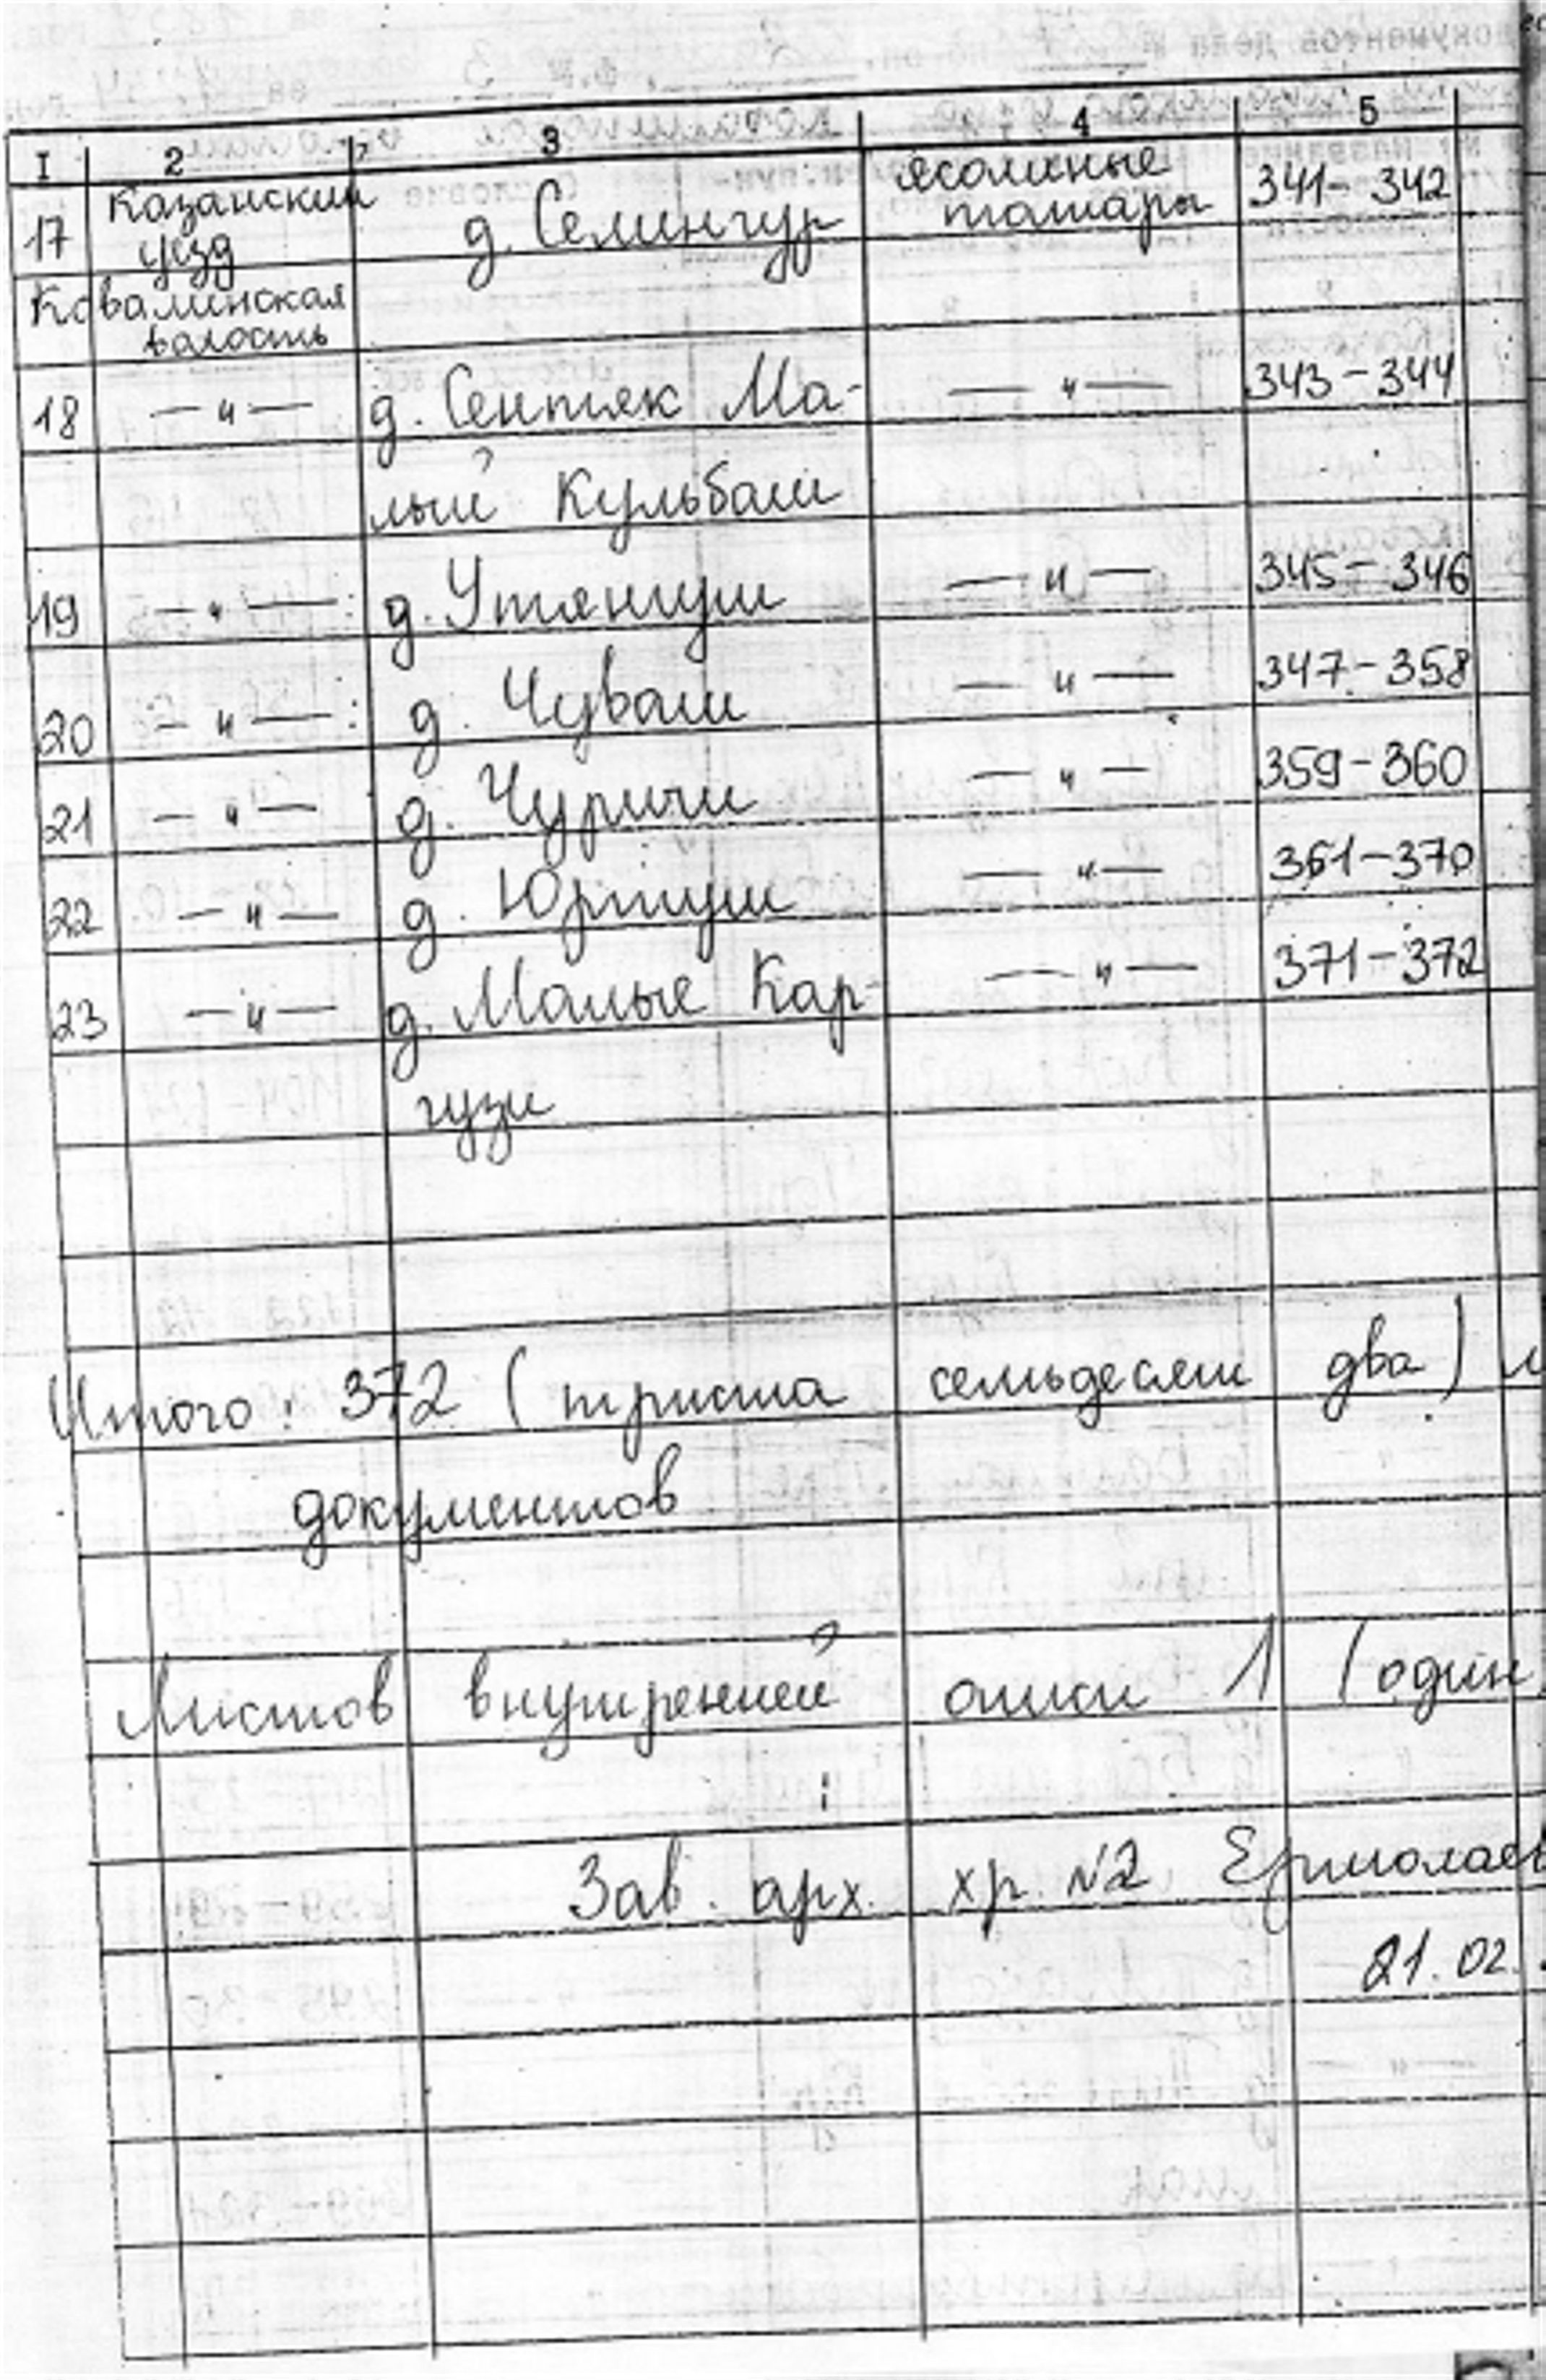 1 2 3 4 5
17 Казанский уезд д. Селингур ясашные татары 341-342
Ковалинская волость
18 —〃— д. Сентяк Ма- —〃— 343-344
лый Кульбаш
19 —〃— д. Утянгуш —〃— 345-346
20 —〃— д. Чуваш —〃— 347-358
21 —〃— д. Чуричи —〃— 359-360
22 —〃— д. Юртуш —〃— 361-370
23 —〃— д. Малые Кар- —〃— 371-372
гузи
Итого: 372 (триста семьдесят два)
документов
Листов внутренней описи 1 (один
Зав. арх. хр. №2 Ермолаев
21.02.